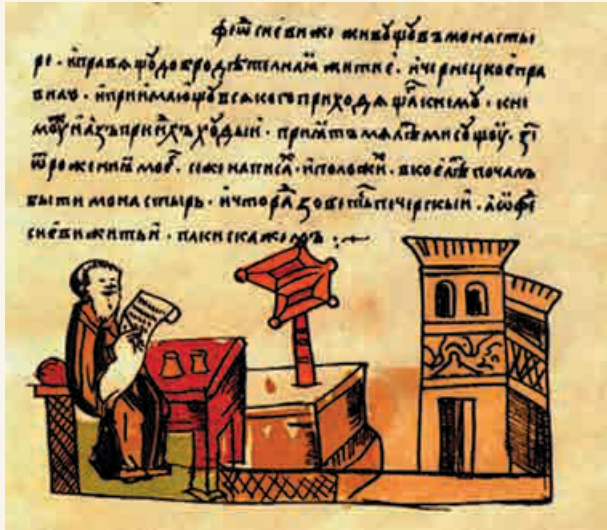 феѡⷣсиеви же живꙋщꙋ въ монасты
ре · и правѧщꙋ добродѣтелнаꙗ житиє · и чернецкоє пра
вило · и приимающꙋ всѧкого приходѧщаⷢ к немꙋ · к не
моуⷤ и азъ прииⷣхъ хꙋдыи · приꙗтъ мѧ лѣⷮ ми сꙋщоу · зі҃
ѿ рожениꙗ моеⷢ · се же написаⷯ и положиⷯ · в кое лѣⷮ почалъ
быти монастырь · и что раⷣ зоветьⷭ печерскыи · а ѡ феⷣ
сиеви житьи · паки скажемъ :·~